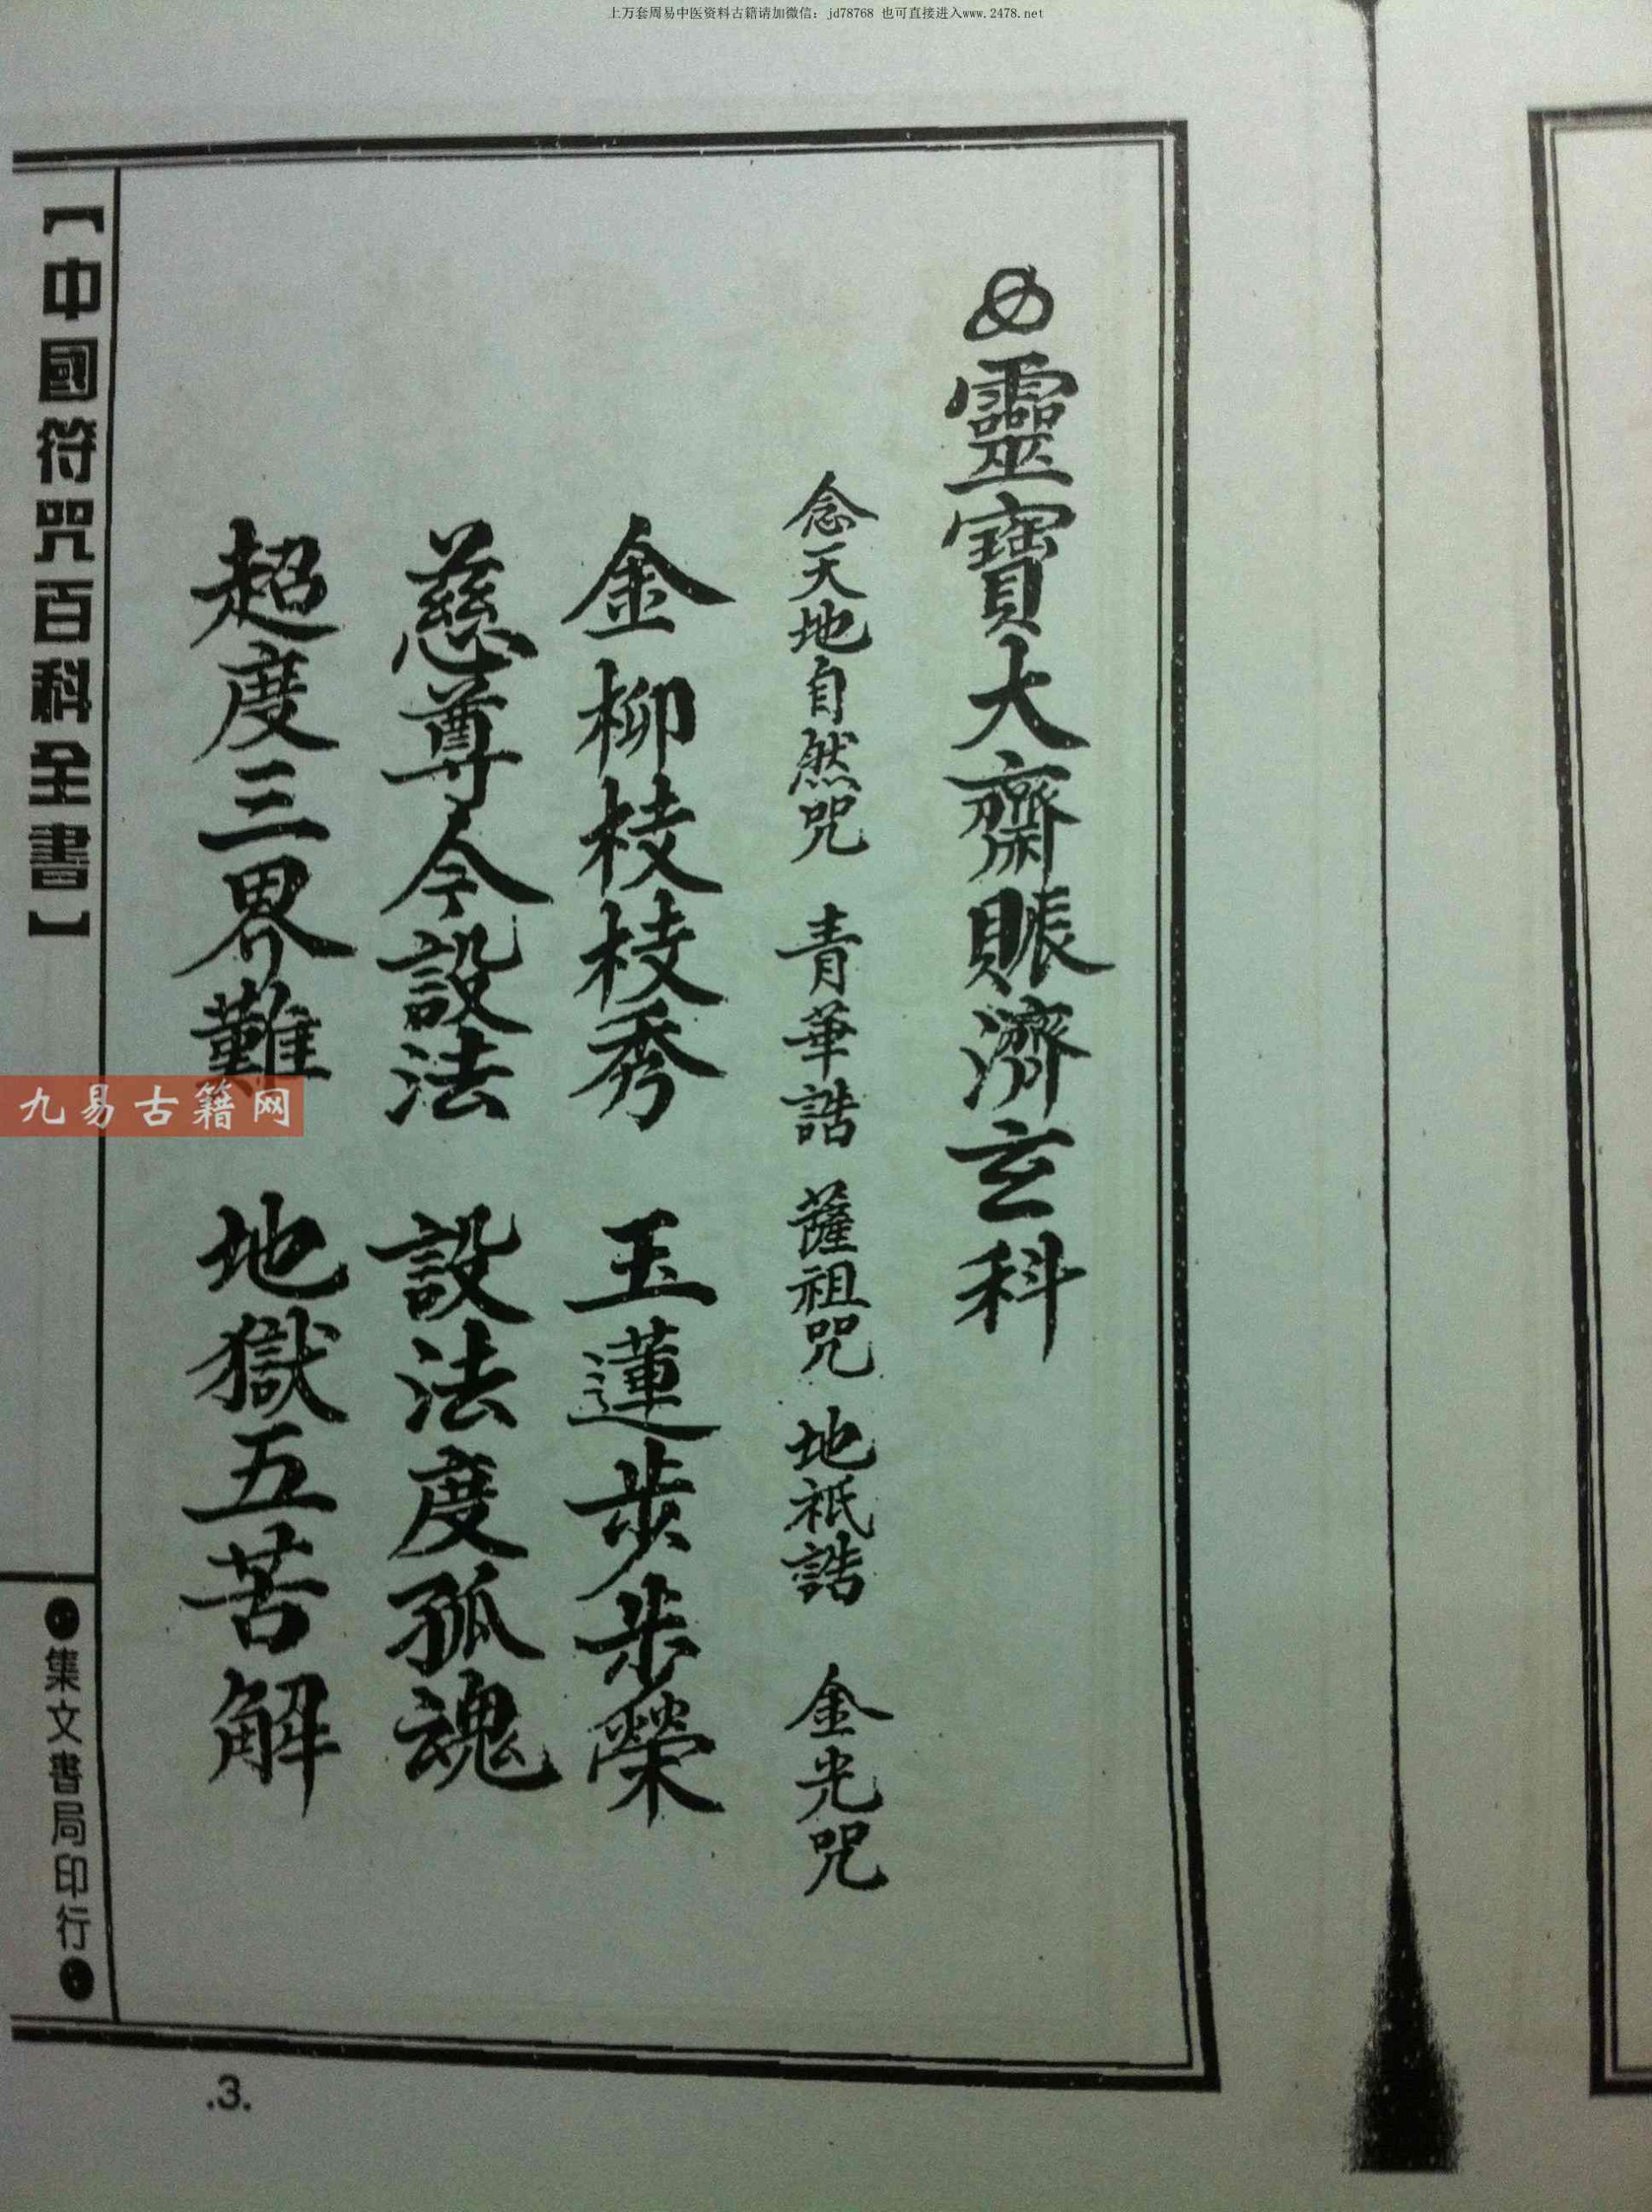 上万套周易中医资料古籍请加微信：jd78768 也可直接进入www.2478.net
靈寶大齋賑濟玄科
念天地自然咒 青華誥 薩祖咒 地祇誥 金光咒
金柳枝枝秀 玉蓮步步榮
慈尊今設法 設法度孤魂
超度三界難 地獄五苦解
【中國符咒百科全書】
集文書局印行
九易古籍网
.3.